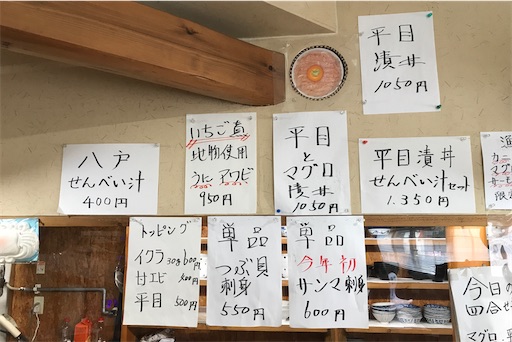 平目
漬丼
1050円
いちご煮
地物使用
うに アワビ
950円
平目
と
マグロ
漬丼
1050円
平目漬丼
せんべい汁セット
1.350円
八戸
せんべい汁
400円
トッピング
イクラ 30g 600
甘エビ
平目 500円
単品
つぶ貝
刺身
550円
単品
今年初
サンマ刺身
600円
マグロ
限定
今日の
四合せ
マグロ、平